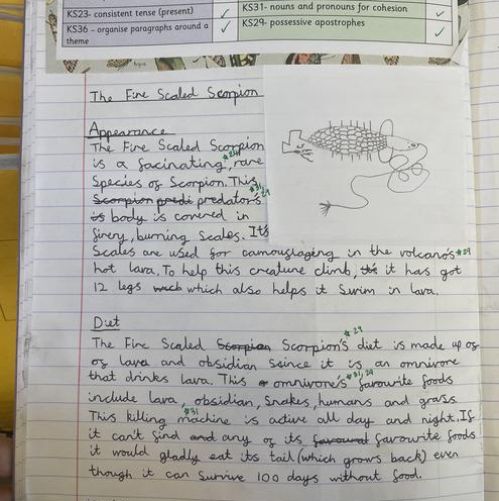 KS23- consistent tense (present) ✓
KS31- nouns and pronouns for cohesion ✓
KS36 - organise paragraphs around a theme ✓
KS29- possessive apostrophes ✓
The Fire Scaled Scorpion
Appearance
The Fire Scaled Scorpion
is a facinating, rare
Species of Scorpion. This
Scorpion predi predator's
is body is covered in
firey, burning Scales. It's
Scales are used for camouflaging in the volcano's
hot lava. To help this creature climb, it has got
12 legs which also helps it Swim in lava.
Diet
The Fire Scaled Scorpion Scorpion's diet is made up of
of lava and obsidian Seince it is an omnivore
that drinks lava. This omnivore's favourite foods
include lava, obsidian, Snakes, humans and grass.
This killing machine is active all day and night. If
it can't find and any of its favourite foods
it would gladly eat its tail (which grows back) even
though it can Survive 100 days without food.